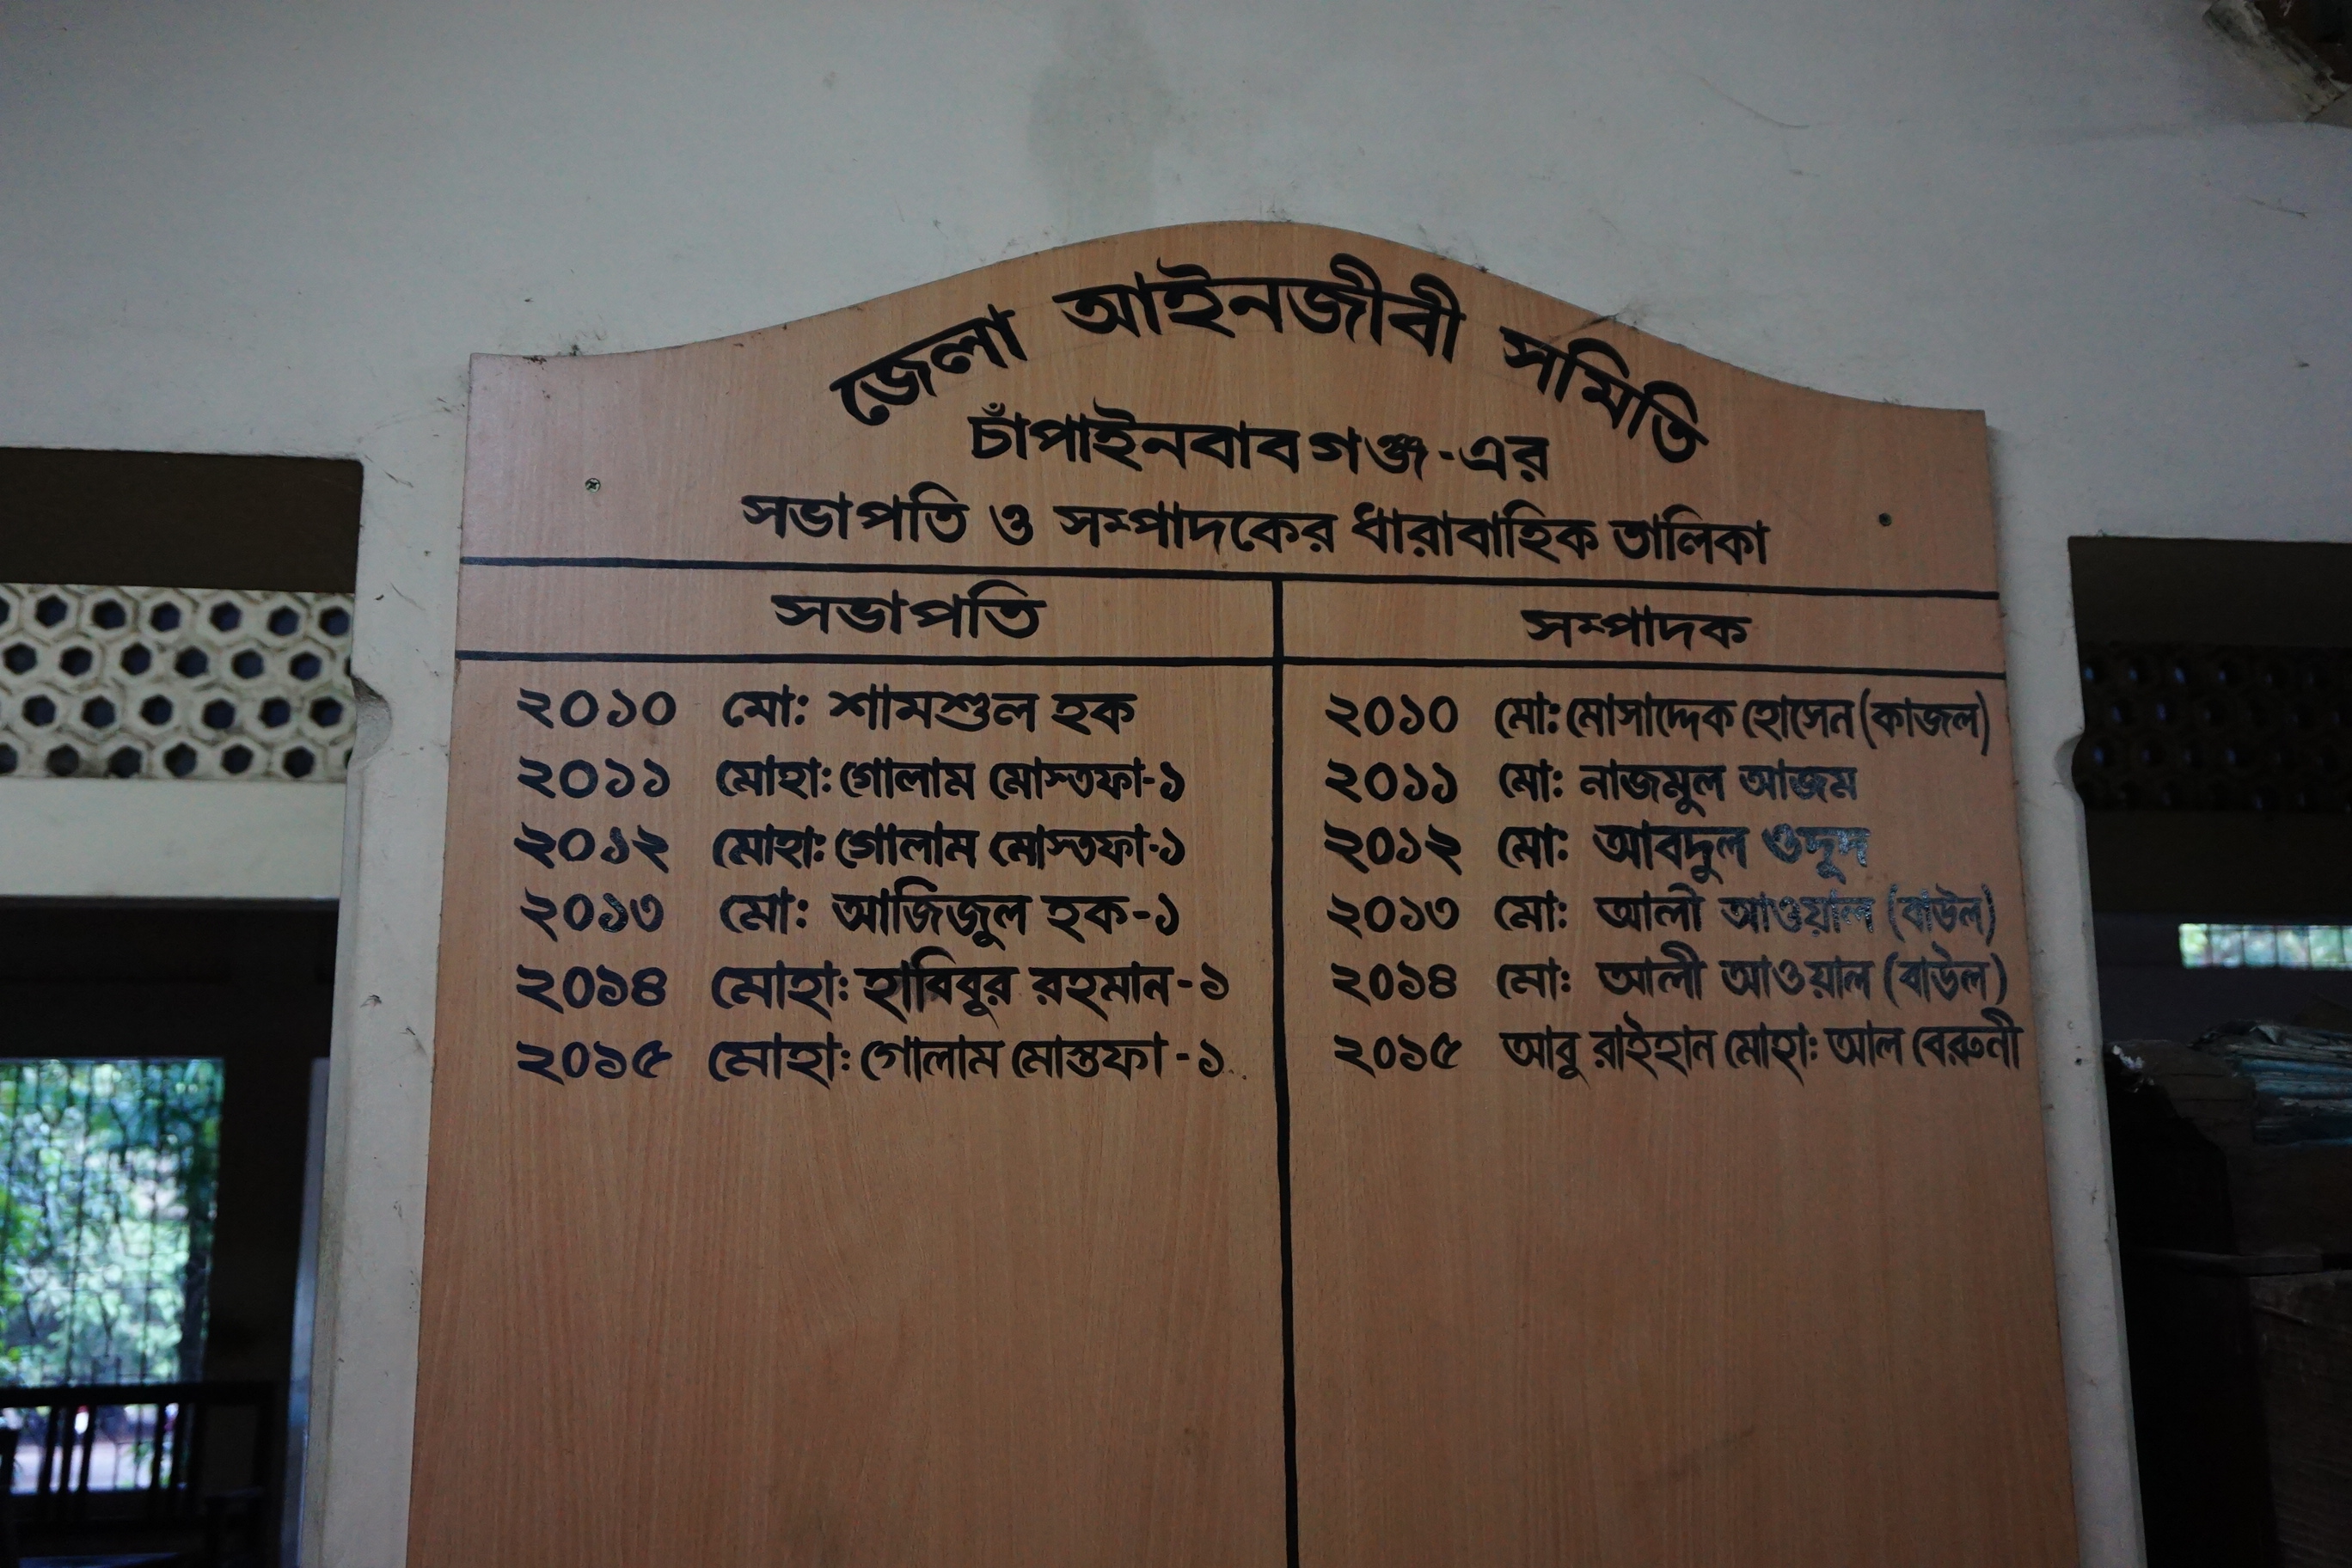 জেলা আইনজীবী সমিতি
চাঁপাইনবাবগঞ্জ-এর
সভাপতি ও সম্পাদকের ধারাবাহিক তালিকা
সভাপতি সম্পাদক
২০১০ মো: শামশুল হক ২০১০ মো: মোসাদ্দেক হোসেন (কাজল)
২০১১ মোহা: গোলাম মোস্তফা-১ ২০১১ মো: নাজমুল আজম
২০১২ মোহা: গোলাম মোস্তফা-১ ২০১২ মো: আবদুল ওদুদ
২০১৩ মো: আজিজুল হক-১ ২০১৩ মো: আলী আওয়াল (বাউল)
২০১৪ মোহা: হাবিবুর রহমান-১ ২০১৪ মো: আলী আওয়াল (বাউল)
২০১৫ মোহা: গোলাম মোস্তফা-১ ২০১৫ আবু রাইহান মোহা: আল বেরুনী